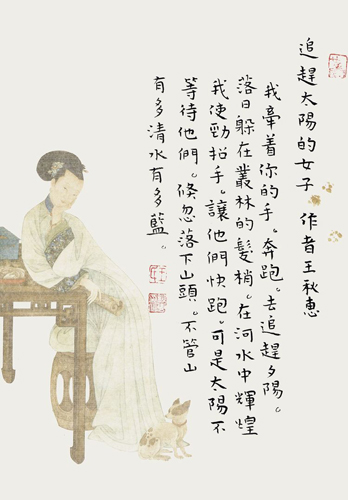 追趕太陽的女子 作者王秋惠
我牽着你的手。奔跑。去追趕夕陽。
落日躲在叢林的髮梢。在河水中輝煌
我使勁招手。讓他們快跑。可是太陽不
等待他們。倏忽落下山頭。不管山
有多清水有多藍。